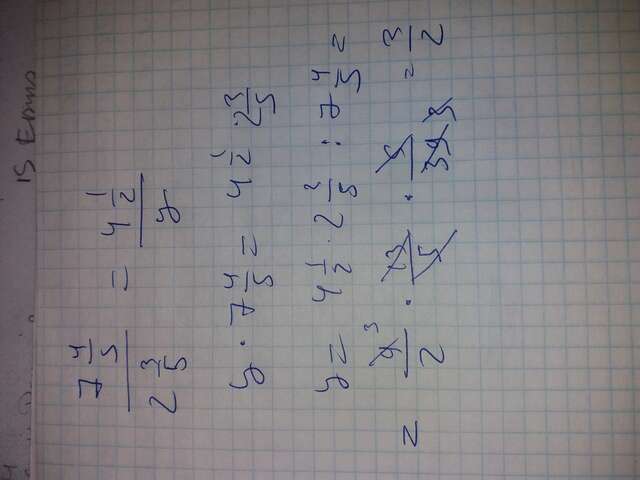 15
7 4/5 / 2 3/5 = 4 1/2 / y
y · 7 4/5 = 4 1/2 · 2 3/5
y = 4 1/2 · 2 3/5 : 7 4/5 =
= 9 3 / 2 · 13/5 · 5/39 3 = 3/2